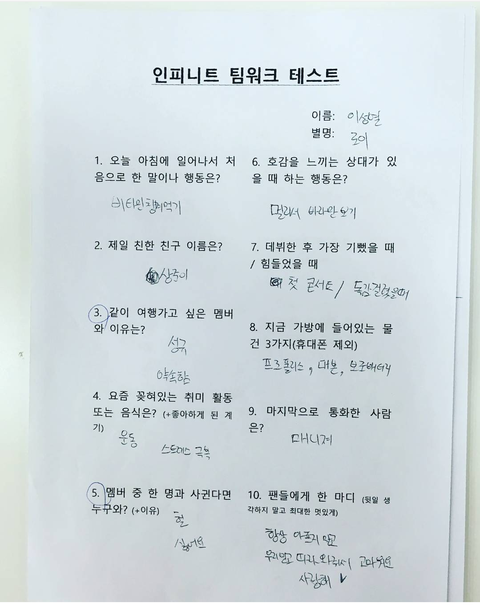 인피니트 팀워크 테스트
이름: 이성열
별명: 로이
1. 오늘 아침에 일어나서 처
음으로 한 말이나 행동은?
비타민 챙겨먹기
2. 제일 친한 친구 이름은?
상주이
3. 같이 여행가고 싶은 멤버
와 이유는?
성규
약속함
4. 요즘 꽂혀있는 취미 활동
또는 음식은? (+좋아하게 된 계
기)
운동
스트레스 극복
5. 멤버 중 한 명과 사귄다면
누구와? (+이유)
싫어요
6. 호감을 느끼는 상대가 있
을 때 하는 행동은?
멀리서 바라만 보기
7. 데뷔한 후 가장 기뻤을 때
/ 힘들었을 때
첫 콘서트 / 독감걸렸을때
8. 지금 가방에 들어있는 물
건 3가지(휴대폰 제외)
대본, 보조배터리
9. 마지막으로 통화한 사람
은?
매니저
10. 팬들에게 한 마디 (뒷일 생
각하지 말고 최대한 멋있게)
항상 아프지 말고
우리믿고 따라와줘서 고마워요
사랑해